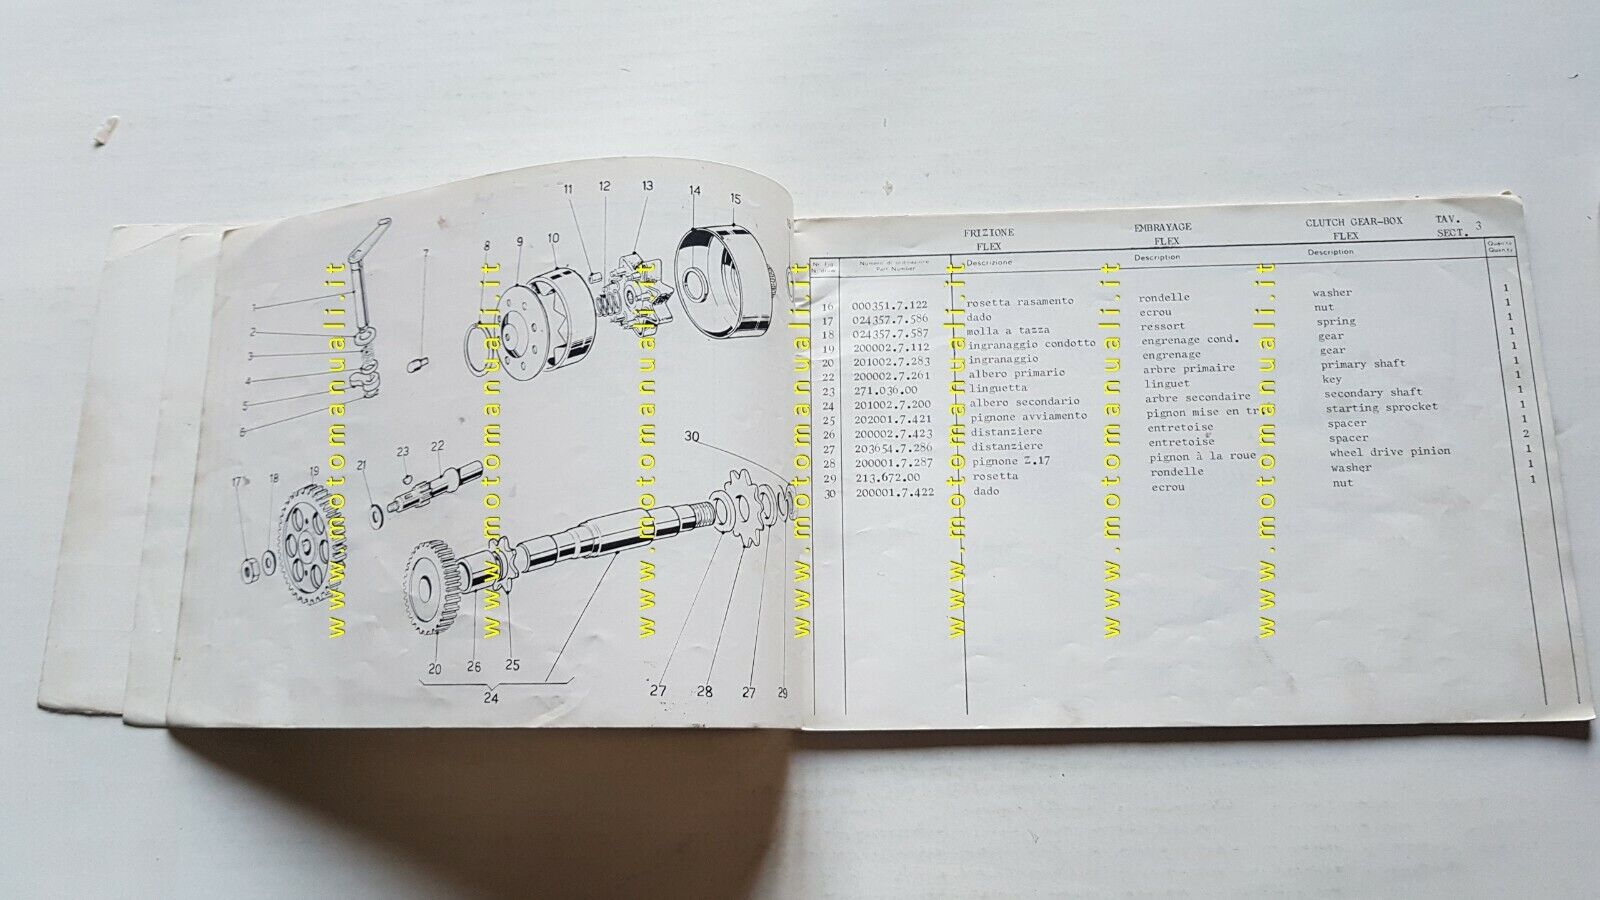 11 12 13 14 15
8 9 10
7
1
2
3
4
5
6
30
23 22
21
19
18
17
20 26 25
24
27 28 27 29
FRIZIONE EMBRAYAGE CLUTCH GEAR-BOX TAV.
FLEX FLEX FLEX SECT. 3
Numero di ordinazione Descrizione Description Description
Part Number
16 000351.7.122 rosetta rasamento rondelle washer 1
17 024357.7.586 dado ecrou nut 1
18 024357.7.587 molla a tazza ressort spring 1
19 200002.7.112 ingranaggio condotto engrenage cond. gear 1
20 201002.7.283 ingranaggio engrenage gear 1
22 200002.7.261 albero primario arbre primaire primary shaft 1
23 271.036.00 linguetta linguet key 1
24 201002.7.200 albero secondario arbre secondaire secondary shaft 1
25 202001.7.421 pignone avviamento pignon mise en tr starting sprocket 1
26 200002.7.423 distanziere entretoise spacer 1
27 203654.7.286 distanziere entretoise spacer 2
28 200001.7.287 pignone Z.17 pignon à la roue wheel drive pinion 1
29 213.672.00 rosetta rondelle washer 1
30 200001.7.422 dado ecrou nut 1
www.motomanuali.it
www.motomanuali.it
www.motomanuali.it
www.motomanuali.it
www.motomanuali.it
www.motomanuali.it
www.motomanuali.it